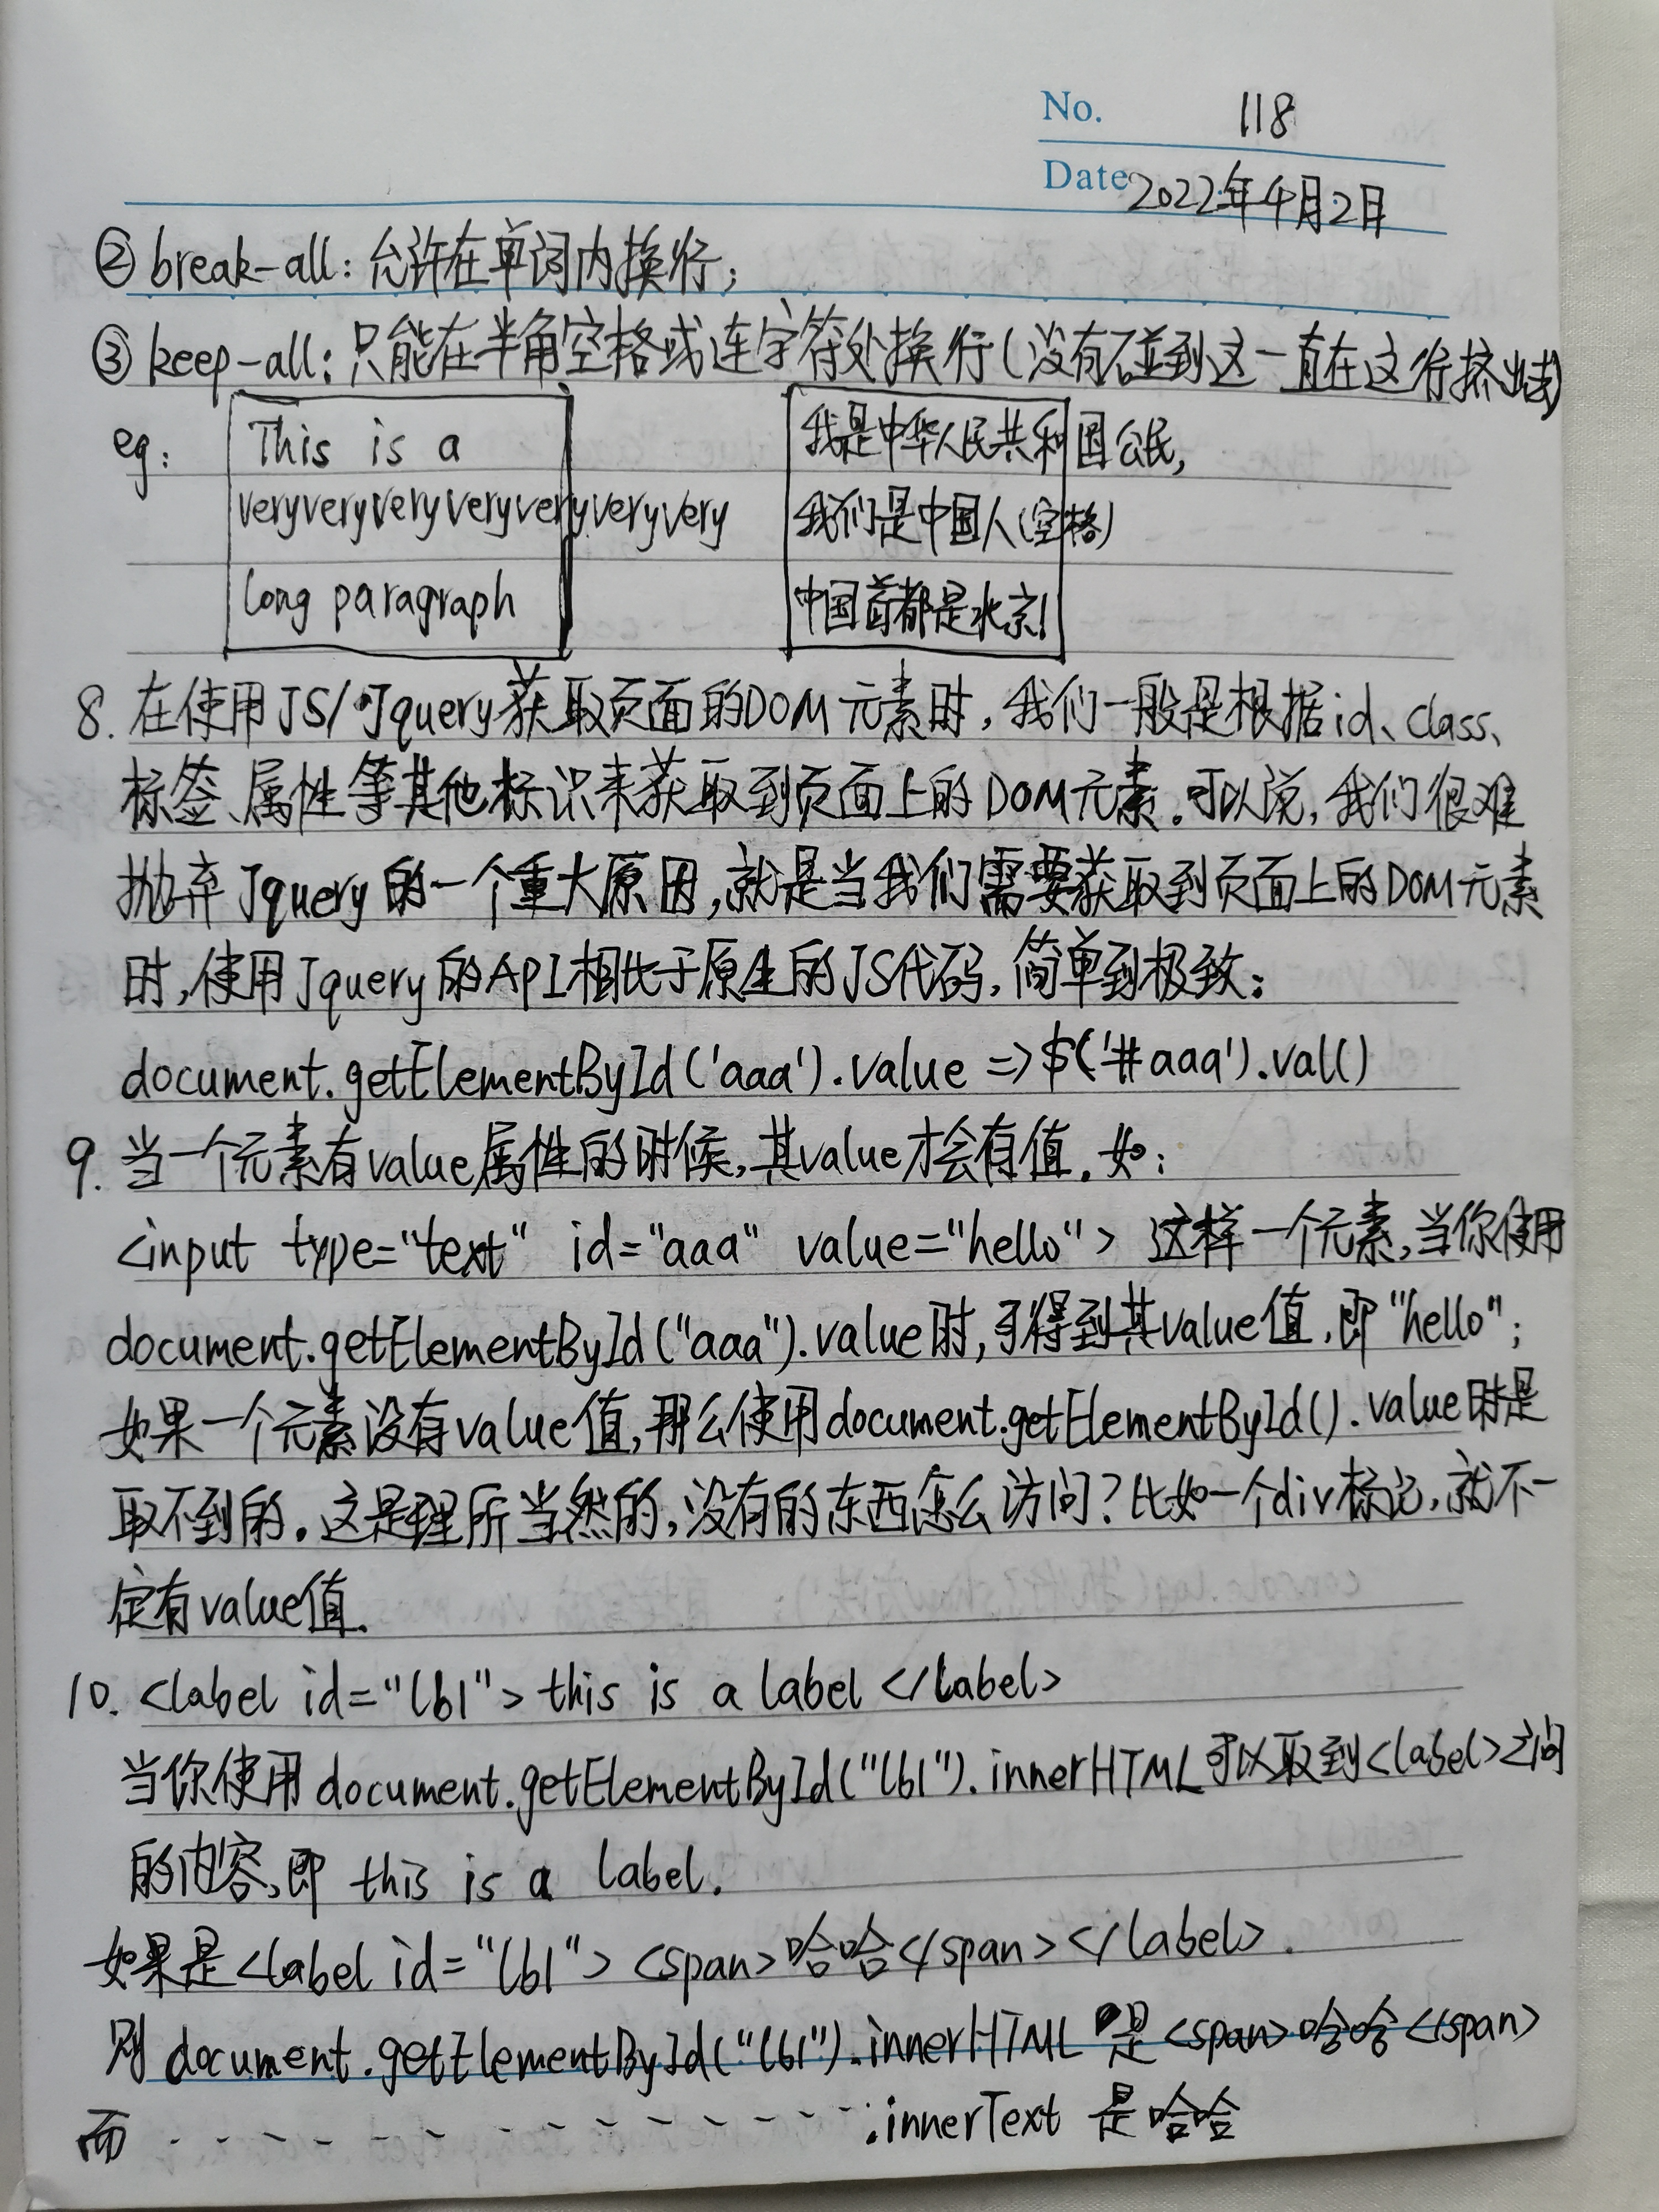 No. 118
Date 2022年4月2日
② break-all: 允许在单词内换行;
③ keep-all: 只能在半角空格或连字符处换行(没有碰到这一直在这行挤出去)
eg: This is a
veryveryveryveryveryveryvery
long paragraph
我是中华人民共和国公民,
我们是中国人(空格)
中国首都是北京!
8. 在使用JS/Jquery获取页面的DOM元素时, 我们一般是根据id、class、
标签、属性等其他标识来获取到页面上的DOM元素。可以说, 我们很难
抛弃Jquery的一个重大原因, 就是当我们需要获取到页面上的DOM元素
时, 使用Jquery的API相比于原生的JS代码, 简单到极致:
document.getElementById('aaa').value => $('#aaa').val()
9. 当一个元素有value属性的时候, 其value才会有值。如:
<input type="text" id="aaa" value="hello"> 这样一个元素, 当你使用
document.getElementById("aaa").value时, 可得到其value值, 即"hello";
如果一个元素没有value值, 那么使用document.getElementById().value时是
取不到的。这是理所当然的, 没有的东西怎么访问? 比如一个div标记, 就不一
定有value值.
10. <label id="lbl"> this is a label </label>
当你使用document.getElementById("lbl").innerHTML可以取到<label>之间
的内容, 即 this is a label.
如果是<label id="lbl"> <span>哈哈</span> </label>.
则document.getElementById("lbl").innerHTML 是<span>哈哈</span>
而 - - - - - - - - - - - - - - .innerText 是哈哈